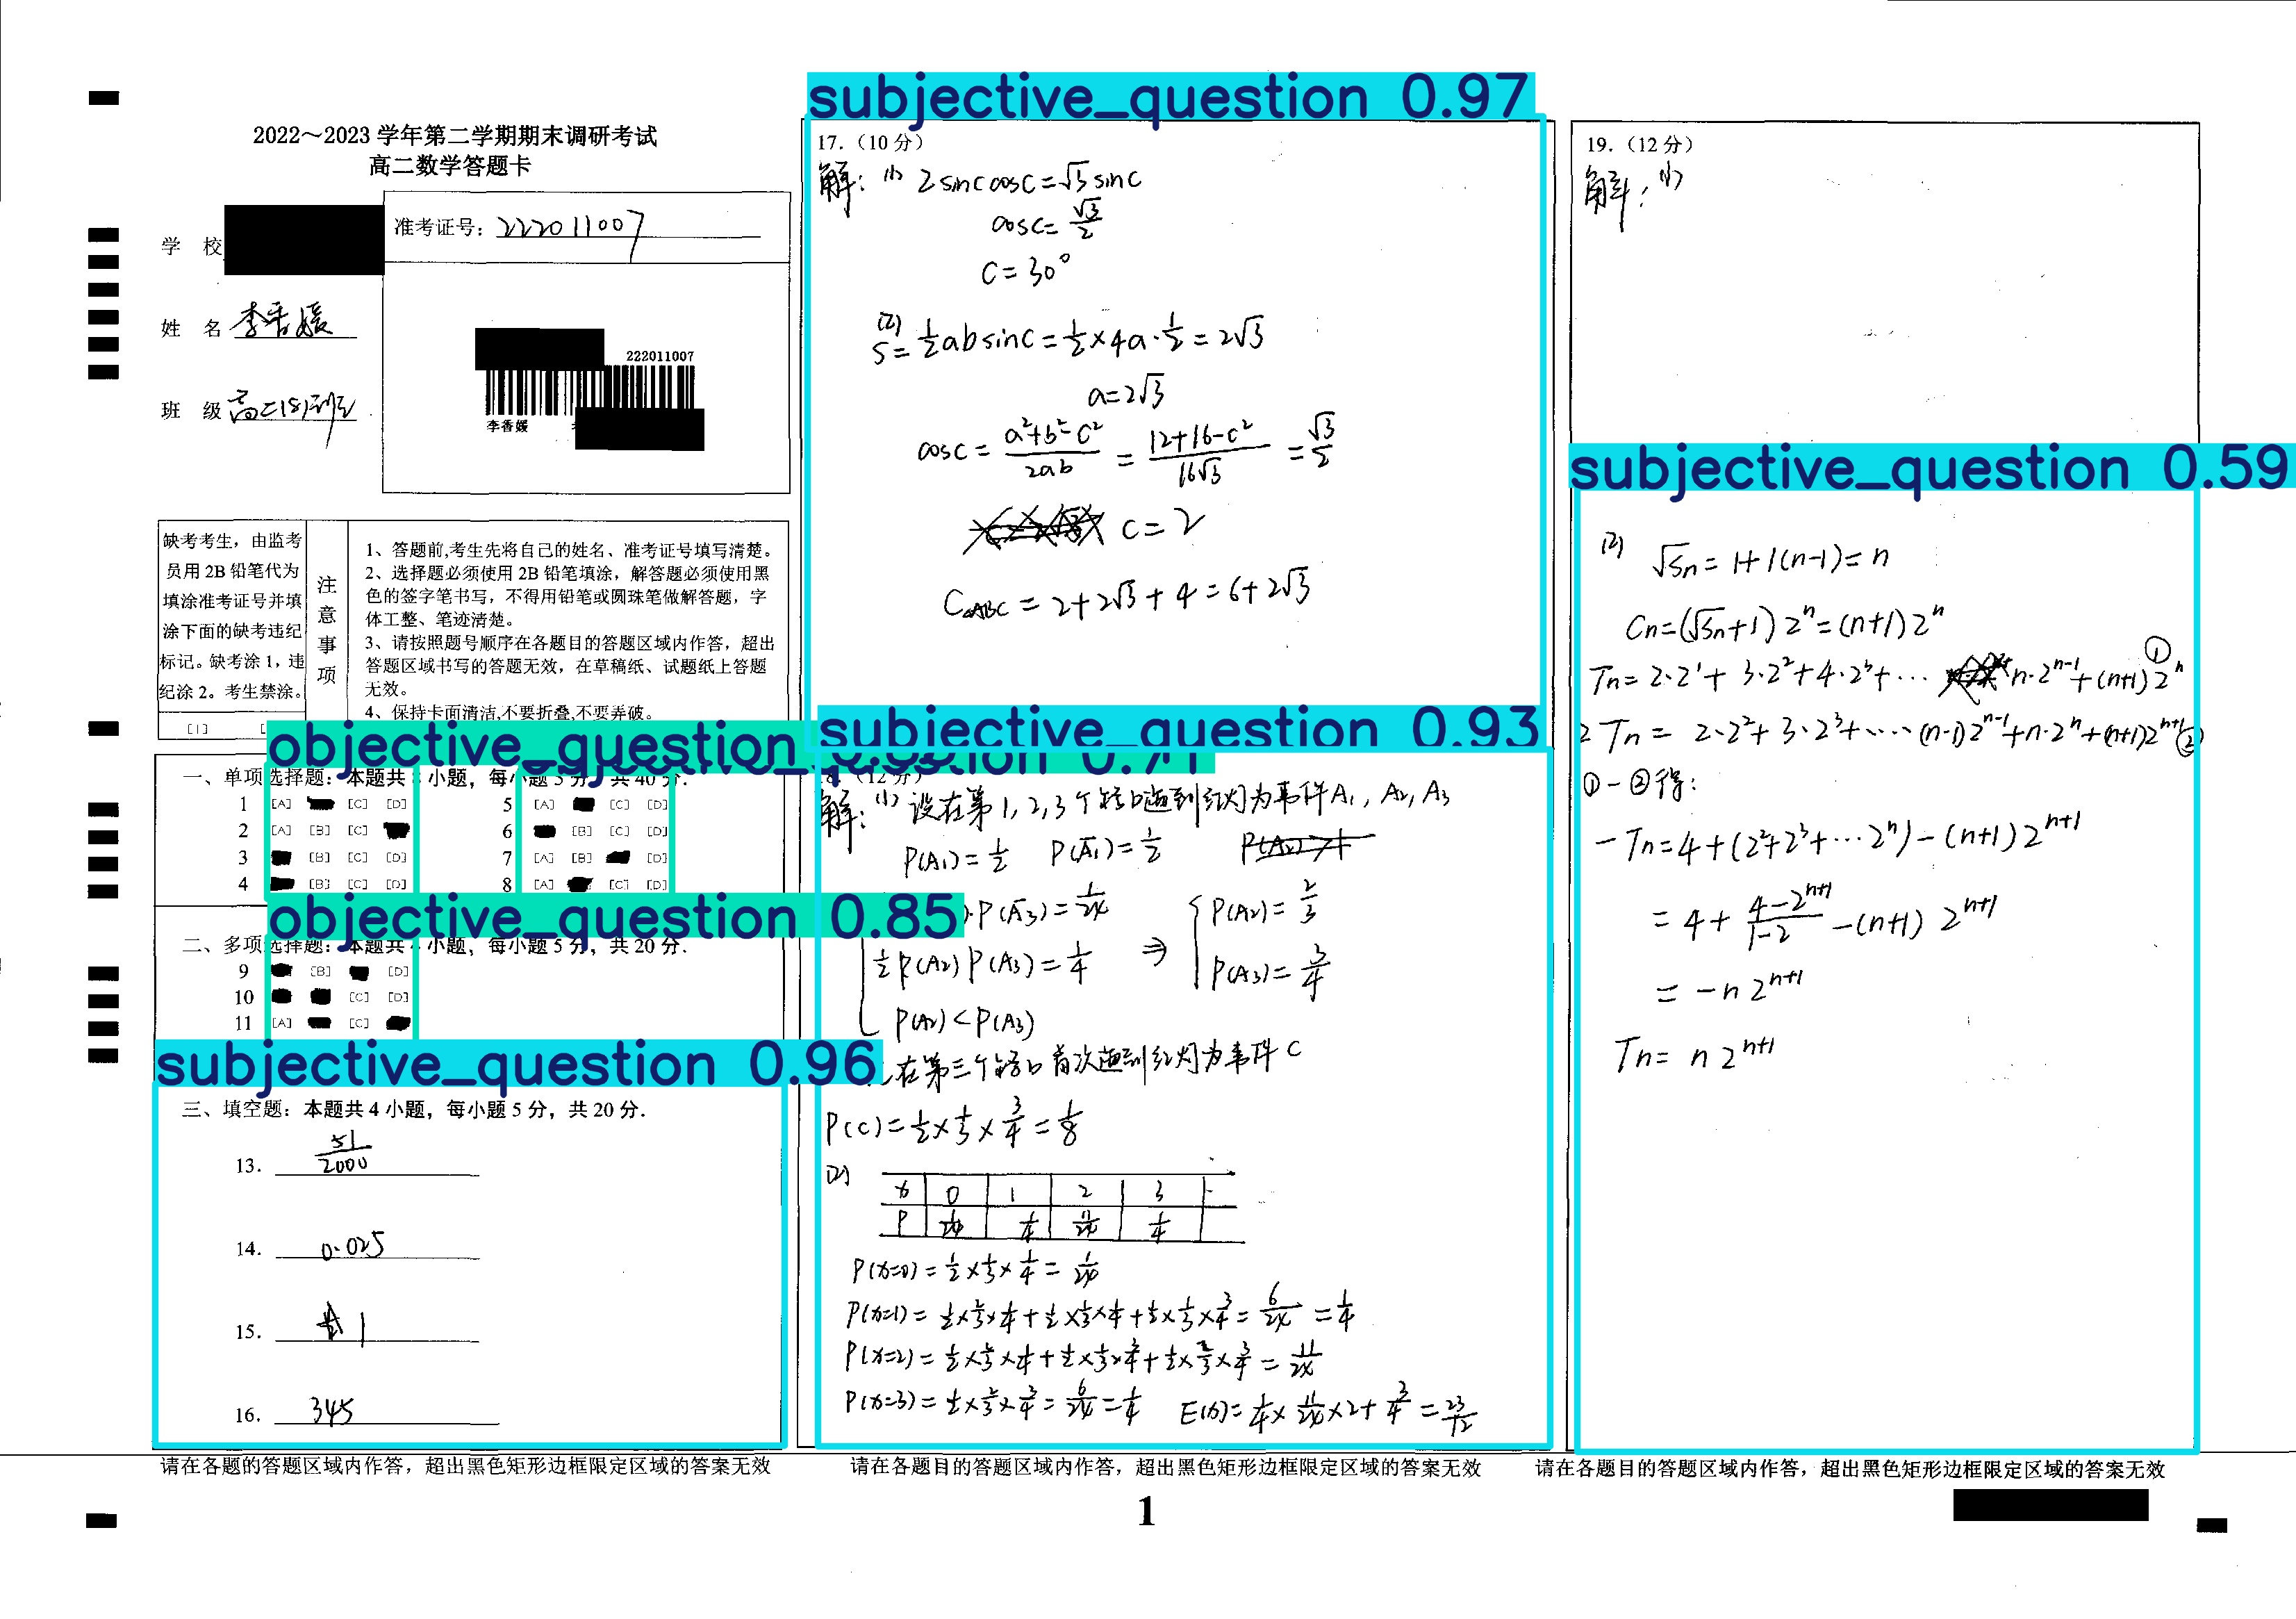 2022～2023 学年第二学期期末调研考试
高二数学答题卡
学 校
准考证号：222011007
姓 名 李香媛
222011007
班 级
李香媛
缺考考生，由监考
员用 2B 铅笔代为
填涂准考证号并填
涂下面的缺考违纪
标记。缺考涂 1，违
纪涂 2。考生禁涂。
[1]
注意事项
1、答题前,考生先将自己的姓名、准考证号填写清楚。
2、选择题必须使用 2B 铅笔填涂，解答题必须使用黑
色的签字笔书写，不得用铅笔或圆珠笔做解答题，字
体工整、笔迹清楚。
3、请按照题号顺序在各题目的答题区域内作答，超出
答题区域书写的答题无效，在草稿纸、试题纸上答题
无效。
4、保持卡面清洁,不要折叠,不要弄破。
objective_question
一、单项选择题：本题共 小题，每小题 5 分，共 40 分．
1 [A] [C] [D] 5 [A] [C] [D]
2 [A] [B] [C] 6 [B] [C] [D]
3 [B] [C] [D] 7 [A] [B] [D]
4 [B] [C] [D] 8 [A] [C] [D]
objective_question 0.85
二、多项选择题：本题共 小题，每小题 5 分，共 20 分．
9 [B] [D]
10 [C] [D]
11 [A] [C]
subjective_question 0.96
三、填空题：本题共 4 小题，每小题 5 分，共 20 分．
13. 51/2000
14. 0.025
15. 1
16. 345
请在各题的答题区域内作答，超出黑色矩形边框限定区域的答案无效
subjective_question 0.97
17.（10 分）
解：(1) 2sinCcosC=√3sinC
cosC=√3/2
C=30°
(2)
S=1/2absinC=1/2×4a·1/2=2√3
a=2√3
cosC=(a²+b²-c²)/2ab=(12+16-c²)/16√3=√3/2
C=2
C△ABC=2+2√3+4=6+2√3
subjective_question 0.93
18.（12 分）
解：(1) 设在第1,2,3个路口遇到红灯为事件A₁, A₂, A₃
P(A₁)=1/2 P(Ā₁)=1/2
·P(Ā₃)=1/24 P(A₂)=2/3
1/2P(A₂)P(A₃)=1/4 ⇒ P(A₃)=3/4
P(A₂)<P(A₃)
在第三个路口首次遇到红灯为事件C
P(C)=1/2×1/3×3/4=1/8
(2)
x 0 1 2 3
P 1/24 1/4 11/24 1/4
P(x=0)=1/2×1/3×1/4=1/24
P(x=1)=1/2×2/3×1/4+1/2×1/3×1/4+1/2×1/3×3/4=6/24=1/4
P(x=2)=1/2×2/3×1/4+1/2×1/3×3/4+1/2×2/3×3/4=11/24
P(x=3)=1/2×2/3×3/4=6/24=1/4 E(x)=1/4×11/24×2+3/4=23/12
请在各题目的答题区域内作答，超出黑色矩形边框限定区域的答案无效
1
19.（12 分）
解：(1)
subjective_question 0.59
(2) √Sn=1+1(n-1)=n
Cn=(√Sn+1)2ⁿ=(n+1)2ⁿ
Tn=2·2¹+3·2²+4·2³+··· n·2ⁿ⁻¹+(n+1)2ⁿ ①
2Tn=2·2²+3·2³+···(n-1)2ⁿ⁻¹+n·2ⁿ+(n+1)2ⁿ⁺¹ ②
①-②得：
-Tn=4+(2²+2³+···2ⁿ)-(n+1)2ⁿ⁺¹
=4+(4-2ⁿ⁺¹)/(1-2)-(n+1)2ⁿ⁺¹
=-n2ⁿ⁺¹
Tn=n2ⁿ⁺¹
请在各题目的答题区域内作答，超出黑色矩形边框限定区域的答案无效